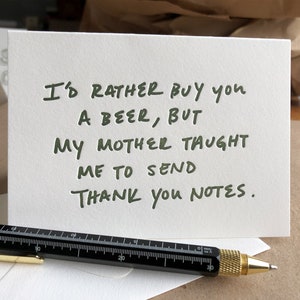 I'D RATHER BUY YOU
A BEER, BUT
MY MOTHER TAUGHT
ME TO SEND
THANK YOU NOTES.